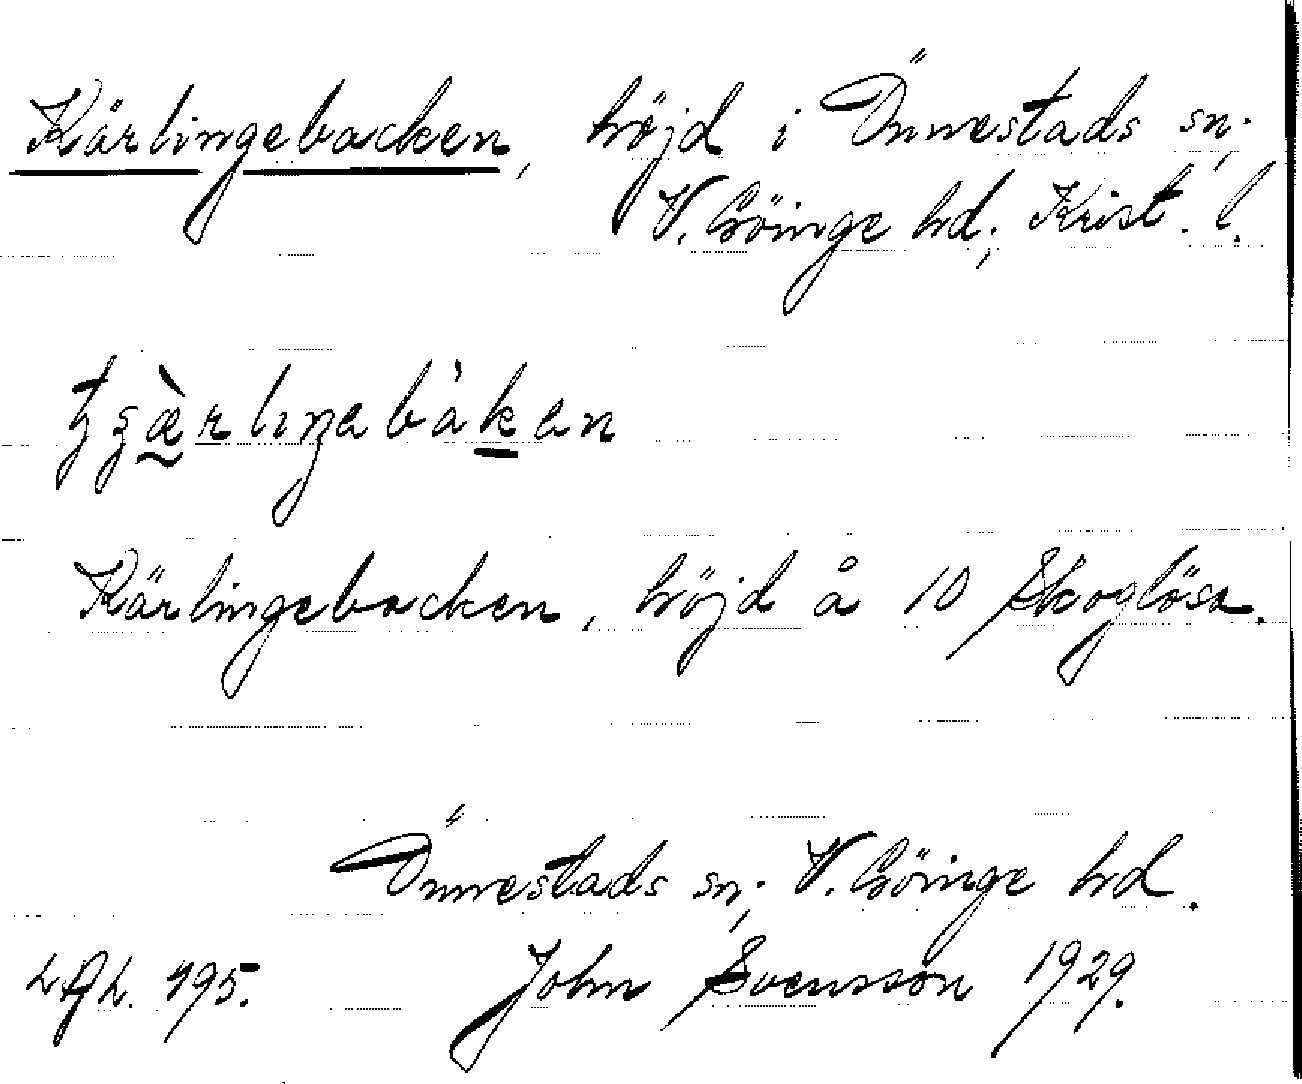 Kärlingebacken, höjd i Önnestads sn;
V. Göinge hd; Krist. l.
Kärlingebacken, höjd å 10 Skoglösa.
Önnestads sn; V. Göinge hd.
John Svensson 1929.